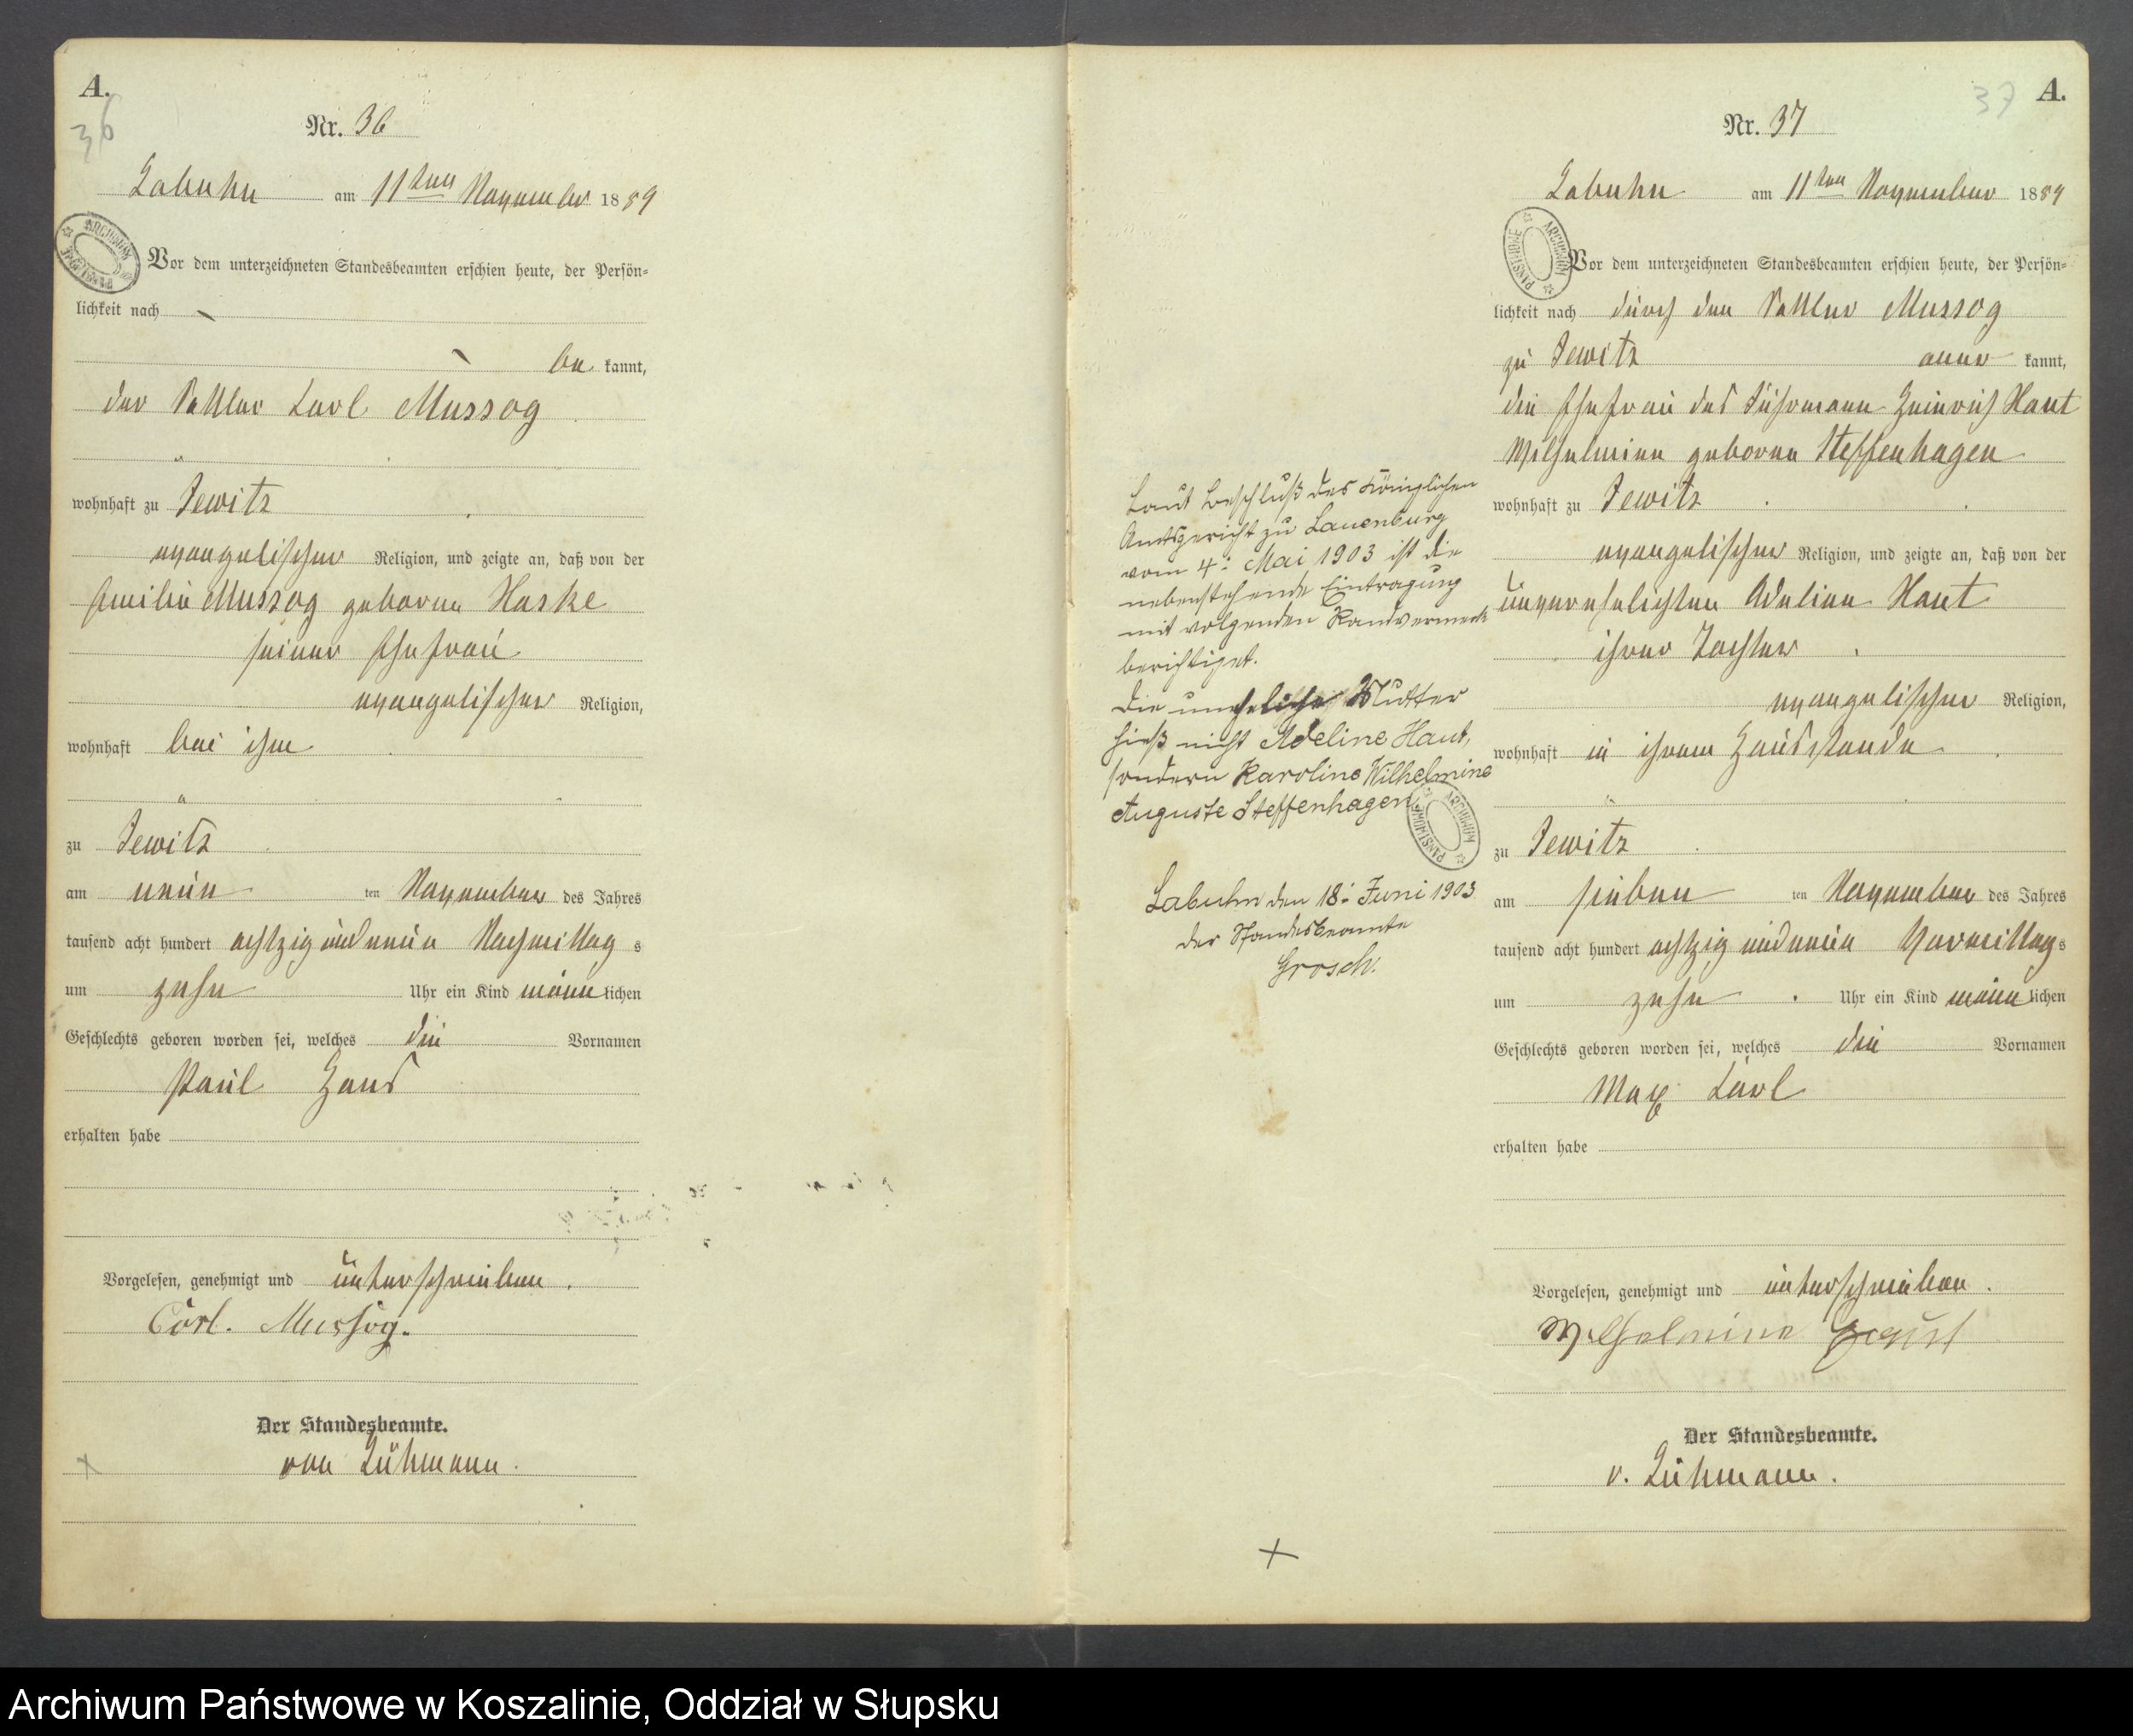 A.
36
Nr. 36
Labuhn am 11ten November 1889
Vor dem unterzeichneten Standesbeamten erschien heute, der Persön=
lichkeit nach
be kannt,
der Sattler Carl Mussog
wohnhaft zu Jewitz
evangelischer Religion, und zeigte an, daß von der
Emilie Mussog geborne Haske
seiner Ehefrau
evangelischer Religion,
wohnhaft bei ihm
zu Jewitz
am neun ten November des Jahres
tausend acht hundert achtzig und neun Nachmittag s
um zehn Uhr ein Kind männ lichen
Geschlechts geboren worden sei, welches die Vornamen
Paul Hans
erhalten habe
Vorgelesen, genehmigt und unterschrieben.
Carl. Mussog.
Der Standesbeamte.
von Lühmann.
Laut Beschluß des Königlichen
Amtsgericht zu Lauenburg
vom 4. Mai 1903 ist die
nebenstehende Eintragung
mit volgenden Randvermerk
berichtiget.
Die uneheliche Mutter
hieß nicht Adeline Hant,
sondern Karoline Wilhelmine
Auguste Steffenhagen
Labuhn den 18. Juni 1903
der Standesbeamte
Grosch.
37
A.
Nr. 37
Labuhn am 11ten November 1889
Vor dem unterzeichneten Standesbeamten erschien heute, der Persön=
lichkeit nach durch den Sattler Mussog
zu Jewitz aner kannt,
die Ehefrau des Fuhrmann Heinrich Hant
Wilhelmine geborne Steffenhagen
wohnhaft zu Jewitz
evangelischer Religion, und zeigte an, daß von der
unverehelichten Adeline Hant
ihrer Tochter
evangelischer Religion,
wohnhaft in ihrem Hausstande
zu Jewitz
am sieben ten November des Jahres
tausend acht hundert achtzig und neun Vormittag s
um zehn Uhr ein Kind männ lichen
Geschlechts geboren worden sei, welches die Vornamen
Max Carl
erhalten habe
Vorgelesen, genehmigt und unterschrieben.
Wilhelmine
Der Standesbeamte.
v. Lühmann.
ARCHIWUM PAŃSTWOWE
Archiwum Państwowe w Koszalinie, Oddział w Słupsku